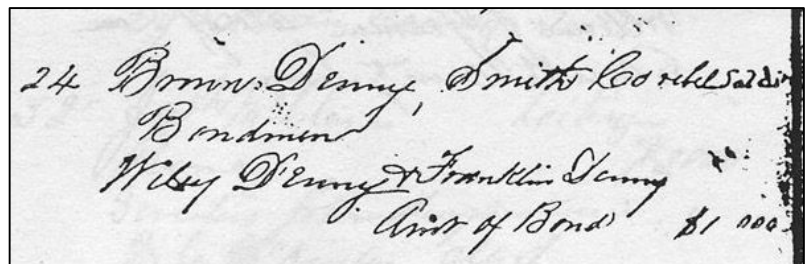 24 Brown Denny, Smith Co rebel Soldier
Bondmen
Wiley Denny & Franklin Denny
Amt of Bond $1 000